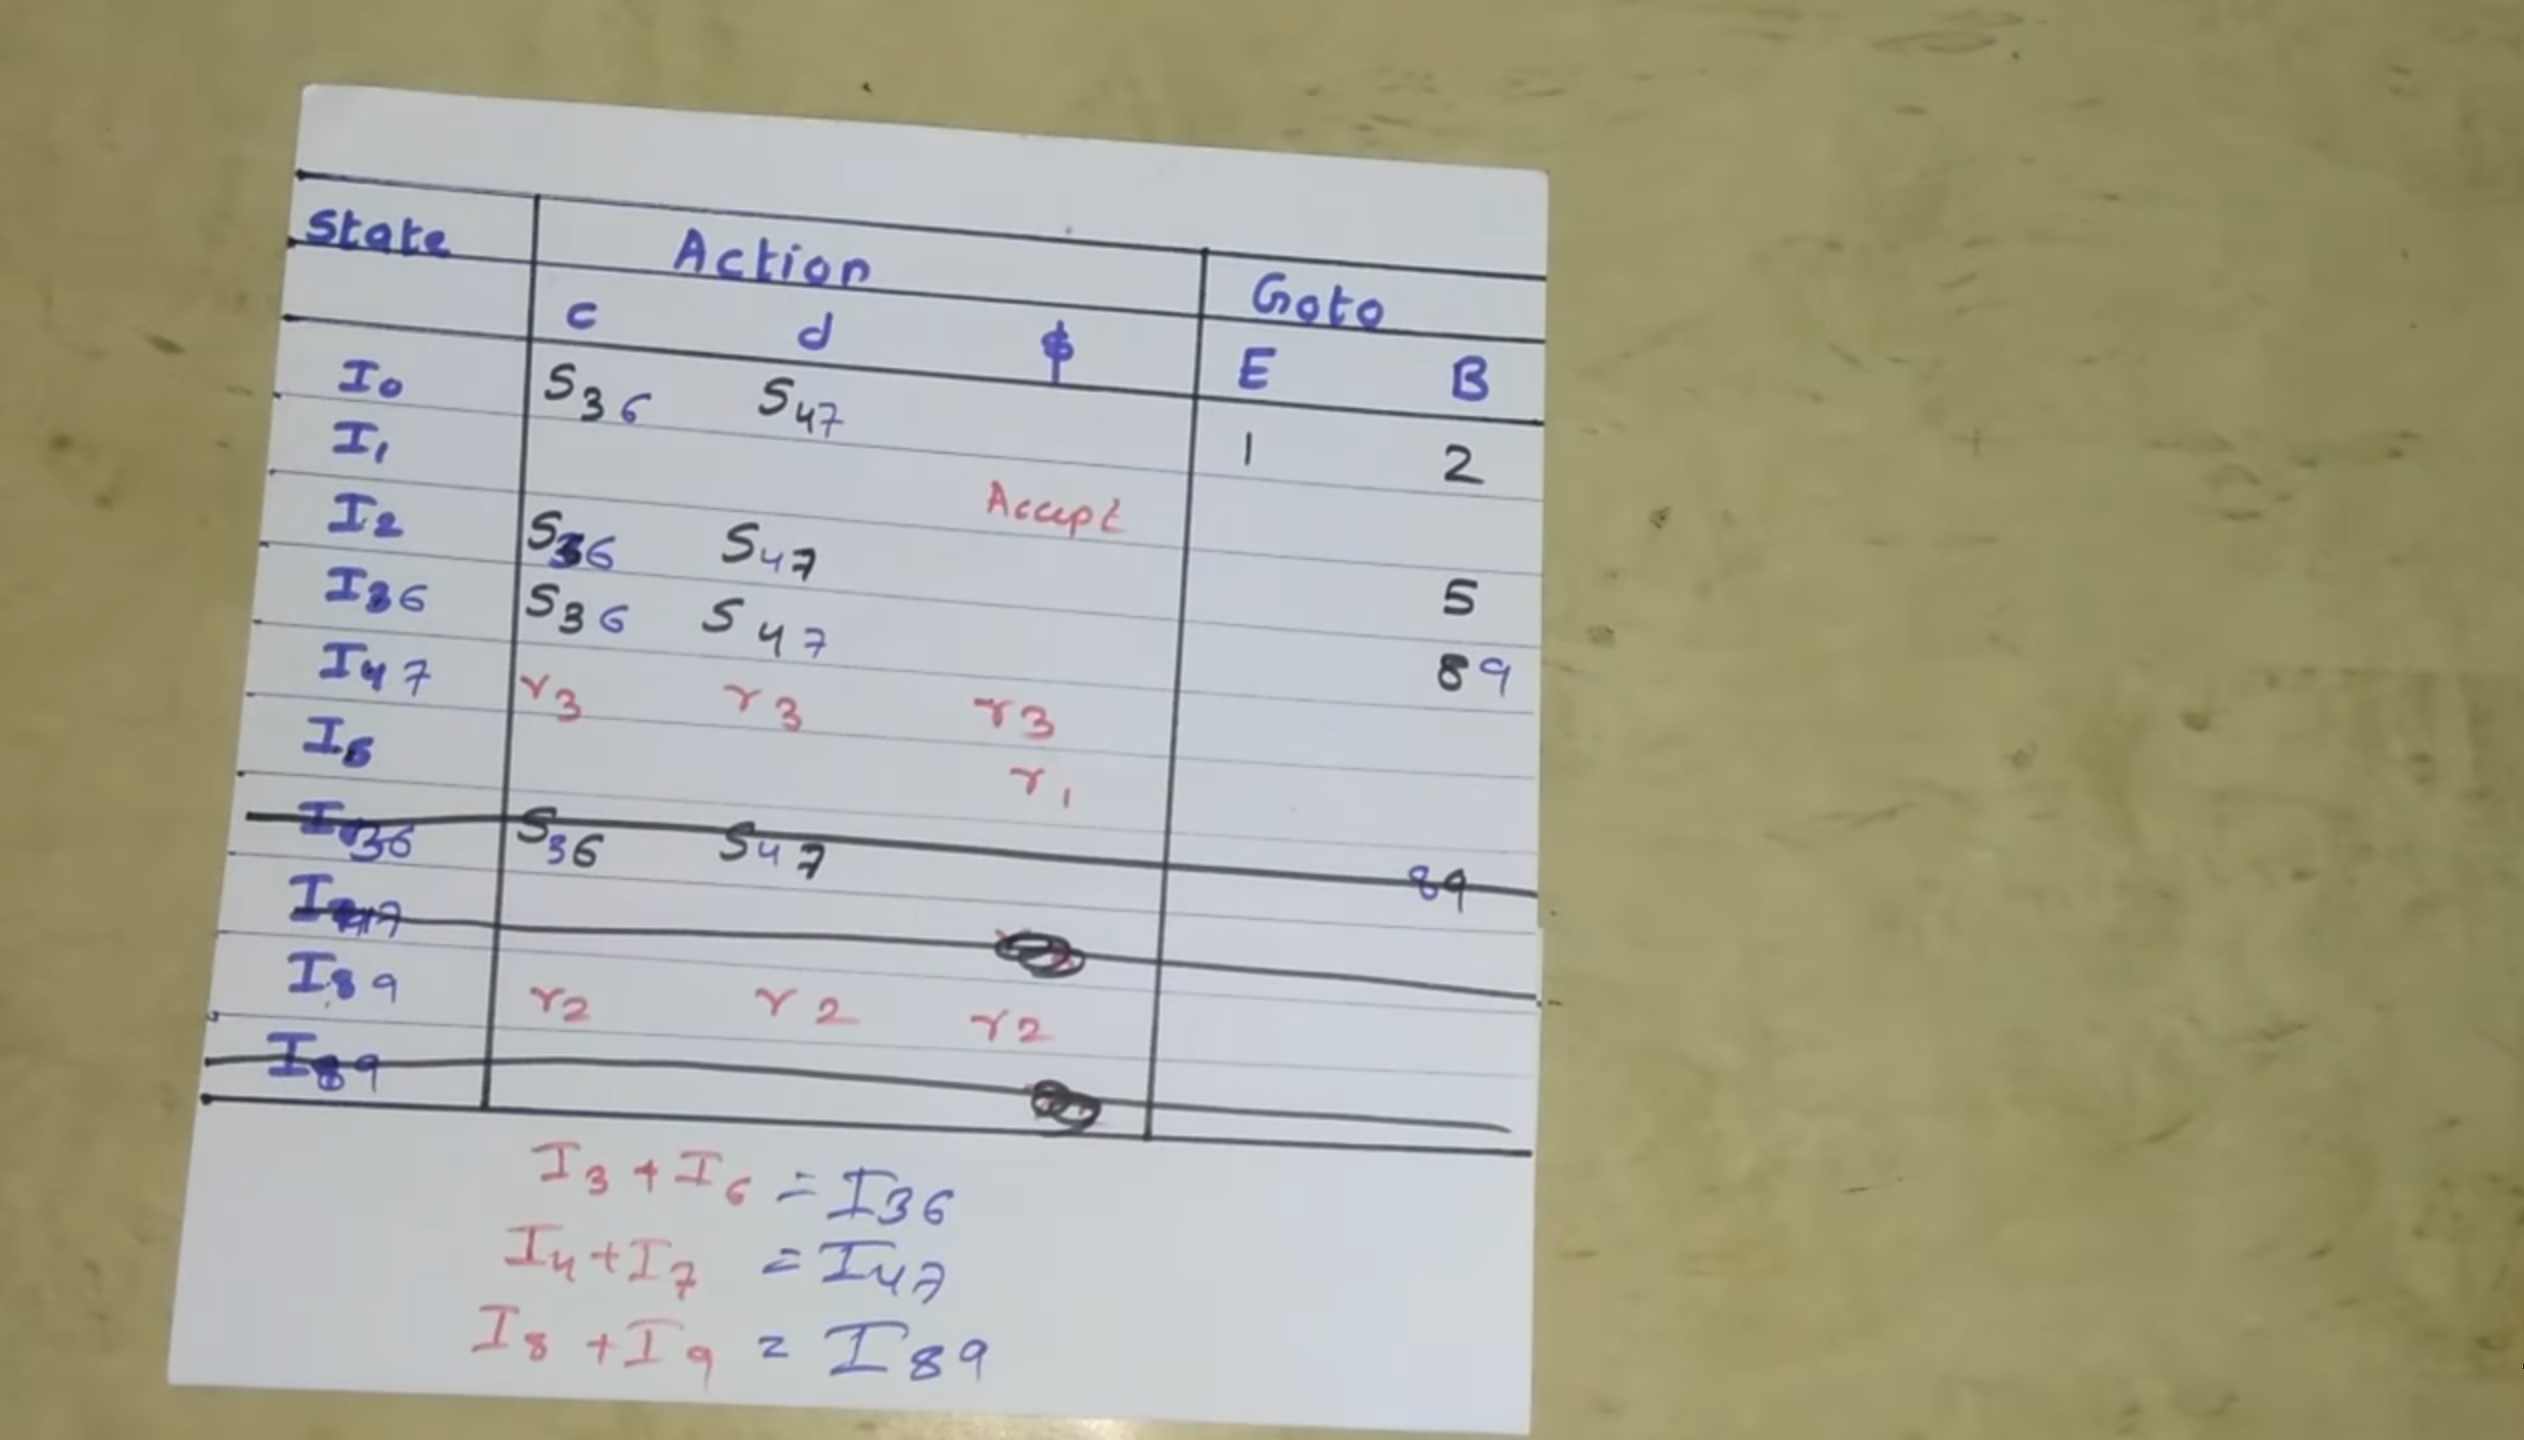 State Action Goto
c d $ E B
I0 S36 S47 1 2
I1 Accept
I2 S36 S47 5
I36 S36 S47 89
I47 r3 r3 r3
I5 r1
I36 S36 S47 89
I47
I89 r2 r2 r2
I89
I3 + I6 = I36
I4 + I7 = I47
I8 + I9 = I89